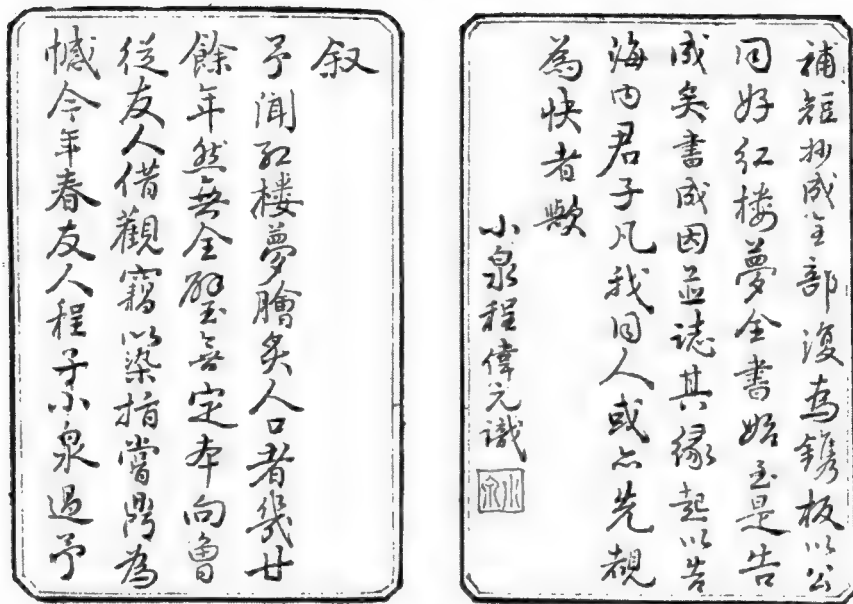 補短抄成全部復為鐫板以公
同好紅樓夢全書始至是告
成矣書成因並誌其緣起以告
海內君子凡我同人或亦先覩
為快者歟
小泉程偉元識
小泉
叙
予聞紅樓夢膾炙人口者幾廿
餘年然無全璧無定本向曾
從友人借觀竊以染指嘗鼎為
憾今年春友人程子小泉過予